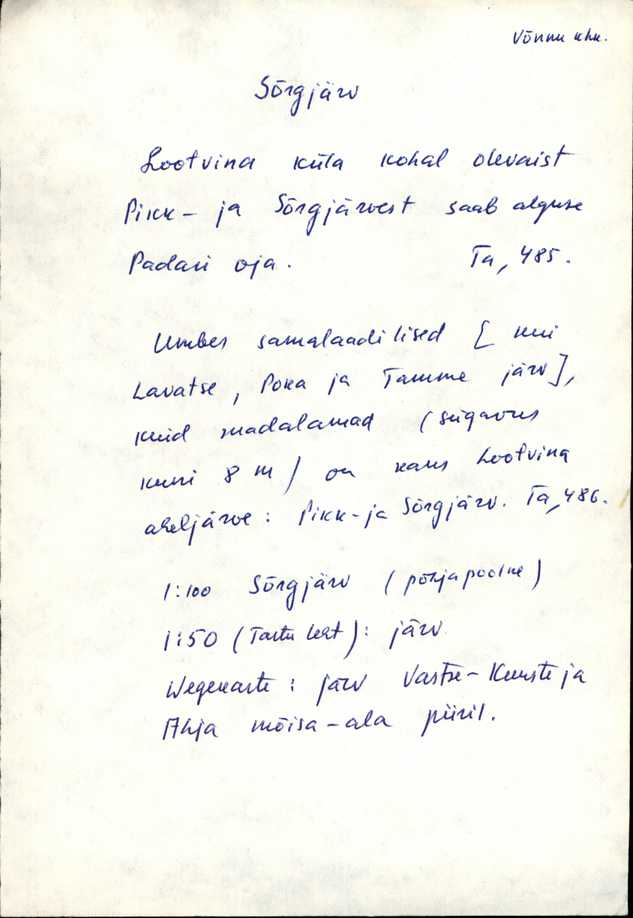 Võnnu khk.
Sõrgjärv
Lootvina küla kohal olevaist
Pikk- ja Sõrgjärvest saab alguse
Padari oja. Ta, 485.
Umbes samalaadilised [kui
Lavatse, Poka ja Tamme järv],
kuid madalamad (sügavus
kuni 8 m) on kaks Lootvina
aheljärve: Pikk- ja Sõrgjärv. Ta, 486.
1:100 Sõrgjärv (põhjapoolne)
1:50 (Tartu leht): järv
Wegekarte: järv Vastse-Kuuste ja
Ahja mõisa-ala piiril.